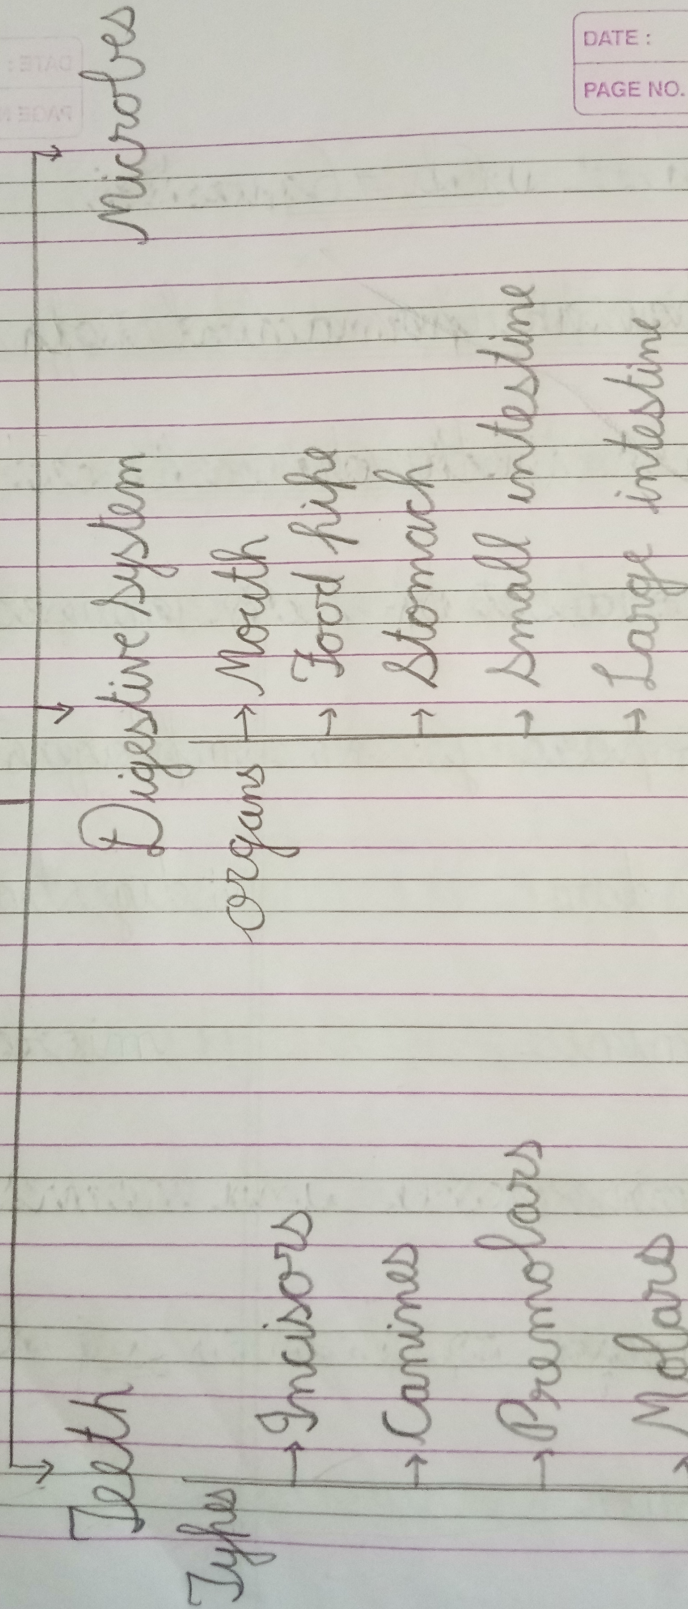 DATE :
PAGE NO.
Teeth
Types
Incisors
Canines
Premolars
Molars
Digestive system
organs
Mouth
Food pipe
Stomach
Small intestine
Large intestine
Microbes